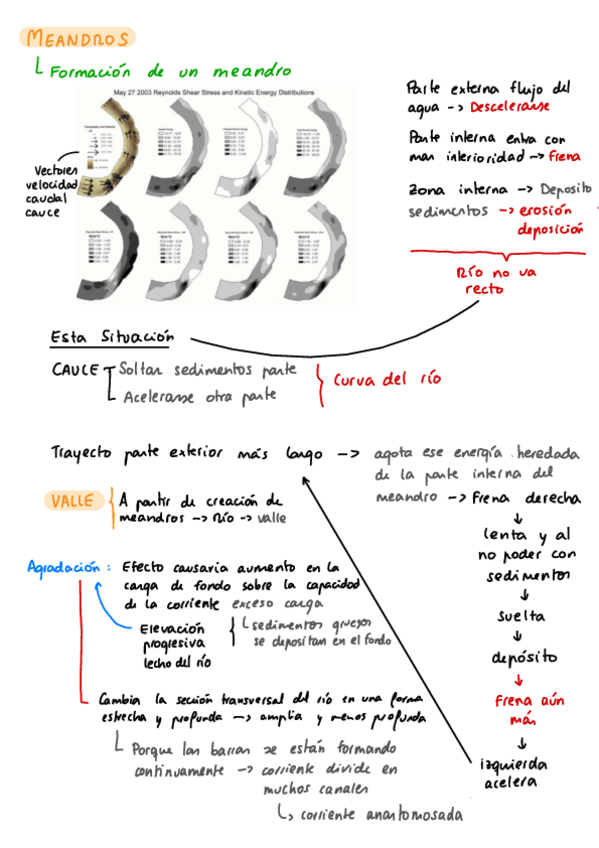 MEANDROS
Formación de un meandro
May 27 2003 Reynolds Shear Stress and Kinetic Energy Distributions
Vectores
velocidad
caudal
cauce
Parte externa flujo del
agua -> Descelerarse
Parte interna entra con
mas interioridad -> frena
Zona interna -> Deposito
sedimentos -> erosión
deposición
Río no va
recto
Esta Situación
CAUCE Soltar sedimentos parte
Acelerarse otra parte
Curva del río
Trayecto parte exterior más largo -> agota ese energía heredada
de la parte interna del
meandro -> Frena derecha
lenta y al
no poder con
sedimentos
suelta
depósito
Frena aún
más
izquierda
acelera
VALLE
A partir de creación de
meandros -> Río -> valle
Agradación: Efecto causaria aumento en la
carga de fondo sobre la capacidad
de la corriente exceso carga
Elevación
progresiva
lecho del río
sedimentos gruesos
se depositan en el fondo
Cambia la sección transversal del río en una forma
estrecha y profunda -> amplia y menos profunda
Porque las barras se están formando
continuamente -> corriente divide en
muchos canales
corriente anastomosada